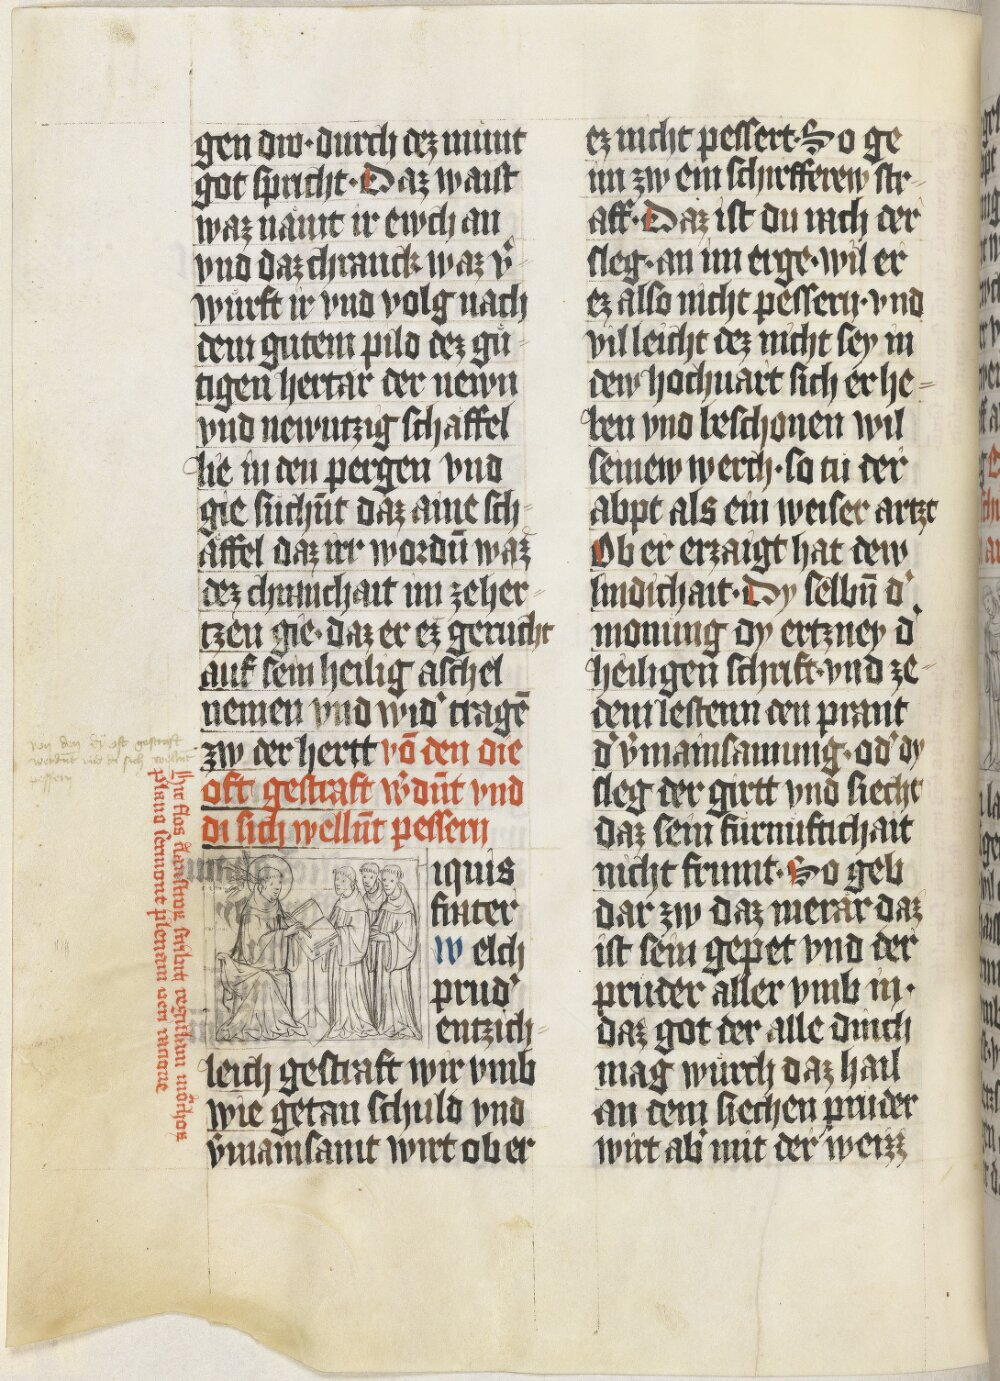 gen diw·durch dez munt
got spricht·Daz waist
waz nämt ir ewch an
vnd daz chranck waz v̾
wurft ir vnd volg nach
dem gutem pild dez gü-
tigen hertär der newn
vnd newntzig schäffel
lie in den pergen vnd
gie suchn̄t daz aine sch-
äffel daz irr wordn̄ waz
dez chranchait im ze her-
tzen gie·daz er ez gerucht
auf sein heilig achsel
nemen vnd wid̾ tragē
zw der hertt vō den die
oft gestraft w̾dn̄t vnd
di sich welln̄t pessern
iquis
friater
welch
prud̾
entzich-
leich gestraft wir vmb
wie getan schuld vnd
v̾mainsamt wirt ob er
ez nicht pessert·So ge
im zw ein scherfferew str-
aff·Daz ist du rach der
sleg·an im erge·wil er
ez also nicht pessern·vnd
villeicht dez nicht sey in
dew hochuart sich erhe-
ben vnd beschonen wil
seinew werch·so tü der
abpt als ein weiser artzt
Ob er erzaigt hat dew
lindichait·Dy selbn̄ d̾
monung dy ertzney d̾
heiligen schrift·vnd ze-
dem lestenn den prant
d̾ v̾mainsamung·od̾ dy
sleg der girtt vnd siecht
daz sein furnuftichait
nicht frumt·So geb
dar zw daz merär daz
ist sein gepet vnd der
prüder aller vmb in·
daz got der alle dinch
mag würch daz hail
an dem siechen prüder
wirt ab̾ mit der weizz
von den dy oft gestraft
werdnt vnd di sich wellnt
pessern
hic flos claustror scribit regulam mōchor
plano sermone plenam uen racione